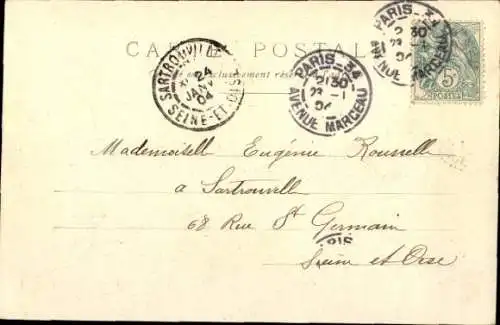 CARTE POSTALE
exclusivement réservé
SARTROUVILLE
24
JANV
04
SEINE-ET-OISE
PARIS_34
2130
23 -1
04
AVENUE MARCEAU
PARIS_34
2 30
23 -1
04
AVENUE MARCEAU
5c
POSTES
Mademoiselle Eugénie Rousselle
a Sartrouvell
68 Rue St Germain
RIS
Seine et Oise